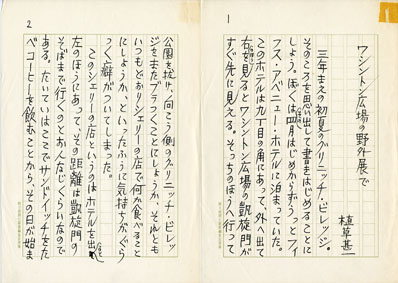 1
ワシントン広場の野外展で
植草甚一
三年まえの初夏のグリニッチ・ビレッジ。
そのころを思い出して書きはじめることに
しよう。ぼくは四月はじめからずうっとフィ
フス・アベニュー・ホテルに泊まっていた。
このホテルは九丁目の角にあって、外へ出て
右を見るとワシントン広場の凱旋門が
すぐ先に見える。そっちのほうへ行って
2
公園を抜け、向こう側のグリニッチ・ビレッ
ジをまたブラつくことにしようか、それとも
いつもどおりシェリーの店で何か食べること
にしようか、といったふうに気持ちがぐら
つく癖がついてしまった。
このシェリーの店というのはホテルを出て
左のほうにあって、その距離は凱旋門の
そばまで行くのとおんなじくらいなので
ある。たいていはここでサンドイッチをた
べコーヒーを飲むことから、その日が始ま